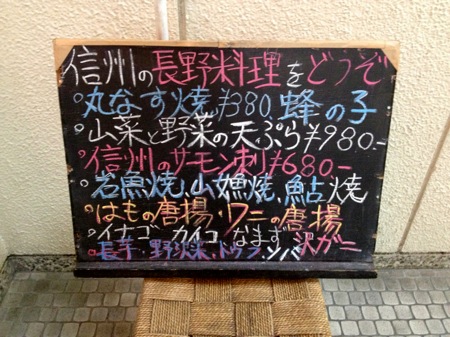 信州の長野料理をどうぞ
°丸なす焼¥380 蜂の子
°山菜と野菜の天ぷら¥980.-
°信州のサーモン刺¥680.-
°岩魚焼.山女魚焼.鮎焼
°はもの唐揚・ワニの唐揚
°イナゴ カイコ なまず 沢ガニ
°長芋・野沢菜.トウフ.ソバ